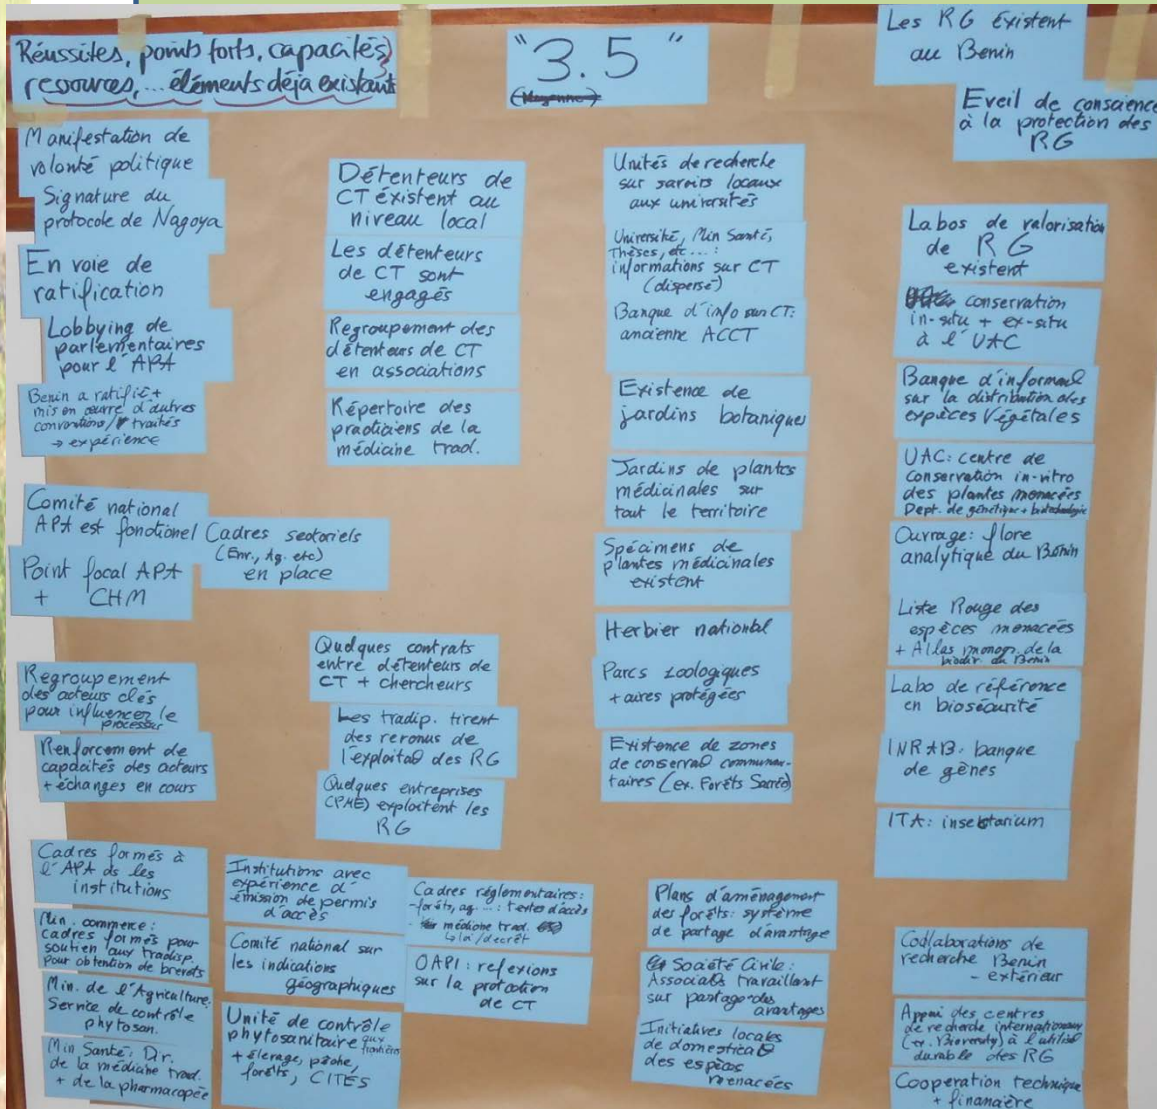 Réussites, points forts, capacités,
resources, ... éléments déja existant
"3.5"
(Moyenne)
Les RG existent
au Benin
Eveil de conscience
à la protection des
RG
Manifestation de
volonté politique
Signature du
protocole de Nagoya
En voie de
ratification
Lobbying de
parlementaires
pour l'APA
Benin a ratifié +
mis en œuvre d'autres
conventions/traités
→ expérience
Comité national
APA est fonctionel
Point focal APA
+ CHM
Cadres sectoriels
(Env., Ag. etc)
en place
Regroupement
des acteurs clés
pour influencer le
processus
Renforcement de
capacités des acteurs
+ échanges en cours
Cadres formés à
l'APA ds les
institutions
Min. commerce:
cadres formés pour
soutien aux tradip.
pour obtention de brevets
Min. de l'Agriculture:
Service de contrôle
phytosan.
Min Santé: Dir.
de la médicine trad.
+ de la pharmacopée
Détenteurs de
CT existent au
niveau local
Les détenteurs
de CT sont
engagés
Regroupement des
détenteurs de CT
en associations
Répertoire des
practiciens de la
médicine trad.
Quelques contrats
entre détenteurs de
CT + chercheurs
Les tradip. tirent
des revenus de
l'exploitaØ des RG
Quelques entreprises
(PME) exploitent les
RG
Institutions avec
expérience d'
émission de permis
d'accès
Comité national sur
les indications
géographiques
Unité de contrôle
phytosanitaire aux frontières
+ élevage, pêche,
forêts, CITES
Cadres réglementaires:
- forêts, ag ... : textes d'accès
- médicine trad.
↳ loi/decrét
OAPI: reflexions
sur la protection
de CT
Unités de recherche
sur savoirs locaux
aux universités
Université, Min Santé,
Thèses, etc ... :
informations sur CT
(dispersé)
Banque d'info sur CT:
ancienne ACCT
Existence de
jardins botaniques
Jardins de plantes
médicinales sur
tout le territoire
Spécimens de
plantes médicinales
existent
Herbier national
Parcs zoologiques
+ aires protégées
Existence de zones
de conservaØ communau-
taires (ex. Forêts Sacrées)
Plans d'aménagement
des forêts: système
de partage d'avantage
Société Civile:
AssociaØs travaillant
sur partage des
avantages
Initiatives locales
de domesticaØ
des espèces
menacées
Labos de valorisation
de RG
existent
conservation
in-situ + ex-situ
à l'UAC
Banque d'informaØ
sur la distribution des
espèces végétales
UAC: centre de
conservation in-vitro
des plantes menacées
Dept. de génétique + biotechnologie
Ouvrage: flore
analytique du Bénin
Liste Rouge des
espèces menacées
+ Atlas monogr. de la
biodiv. du Bénin
Labo de référence
en biosécurité
INRAB: banque
de gènes
ITA: insectarium
Collaborations de
recherche Benin
- extérieur
Appui des centres
de recherche internationaux
(ex. Bioversity) à l'utilisØ
durable des RG
Cooperation technique
+ financière